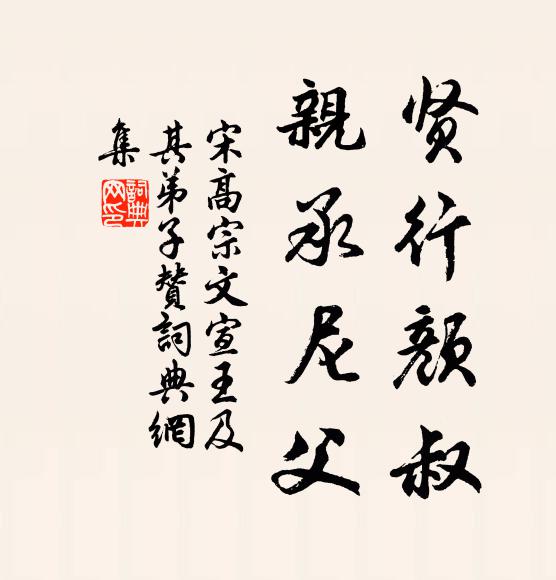 贤行颜叔
親承尼父
宋高宗文宣王及
其弟子贊詞典網
集
詞典
网印